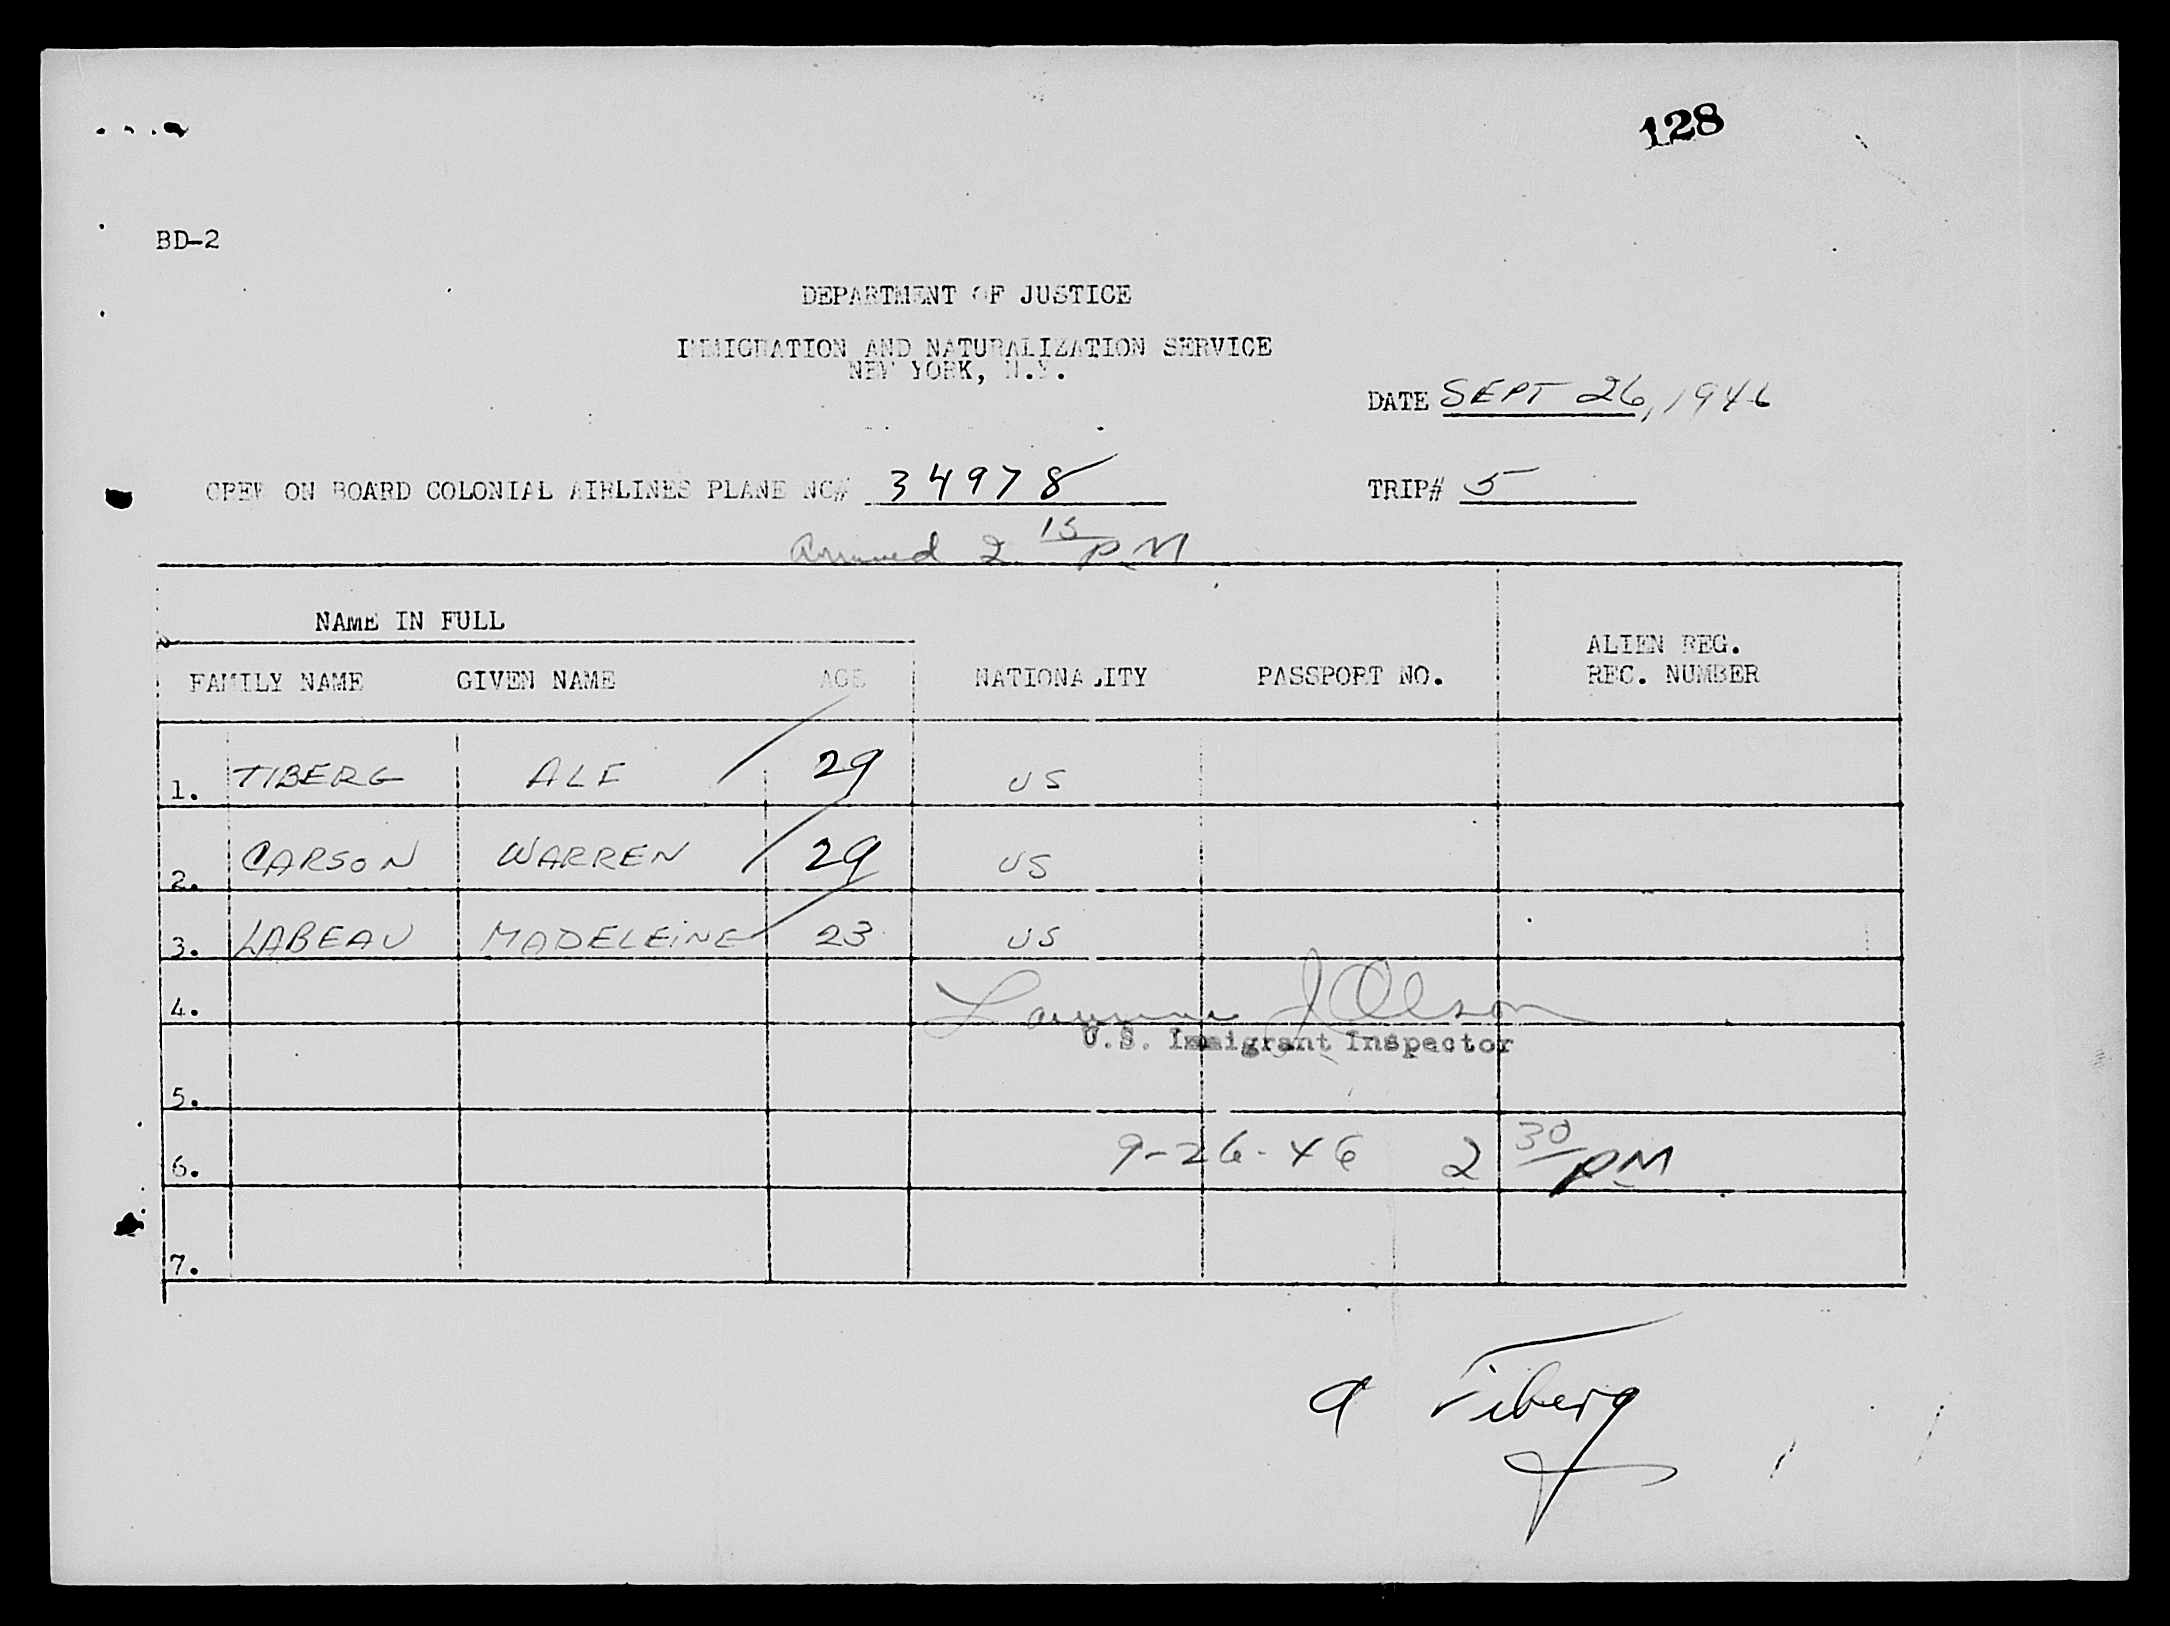 128
BD-2
DEPARTMENT OF JUSTICE
IMMIGRATION AND NATURALIZATION SERVICE
NEW YORK, N.Y.
DATE SEPT 26, 1946
CREW ON BOARD COLONIAL AIRLINES PLANE NC# 34978 TRIP# 5
Arrived 2 15 PM
NAME IN FULL
FAMILY NAME GIVEN NAME AGE NATIONALITY PASSPORT NO. ALIEN REG. REC. NUMBER
1. TIBERG ALF 29 US
2. CARSON WARREN 29 US
3. LABEAU MADELEINE 23 US
4. Lawrence J Olson
U.S. Immigrant Inspector
5.
6. 9-26-46 2 30 PM
7.
A Tiberg